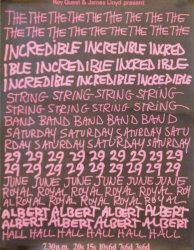 Roy Guest & James Lloyd present
THE THE THE THE THE THE THE
THE THE THE THE THE THE THE
INCREDIBLE INCREDIBLE INCRED
IBLE INCREDIBLE INCRED IBLE
INCREDIBLE INCREDIBLE INCRED
STRING STRING STRING STRING
STRING STRING STRING STRING
BAND BAND BAND BAND BAND
SATURDAY SATURDAY SATURDAY SATU
RDAY SATURDAY SATURDAY SATU
29 29 29 29 29 29 29 29 29 29
29 29 29 29 29 29 29 29 29 29
JUNE JUNE JUNE JUNE JUNE
ROYAL ROYAL ROYAL ROYAL ROY
ROYAL ROYAL ROYAL ROYAL
ALBERT ALBERT ALBERT ALBER
ALBERT ALBERT ALBERT ALBER
HALL HALL HALL HALL HALL HALL
7.30p.m. 20s 15s 10s6d 7s6d 3s6d